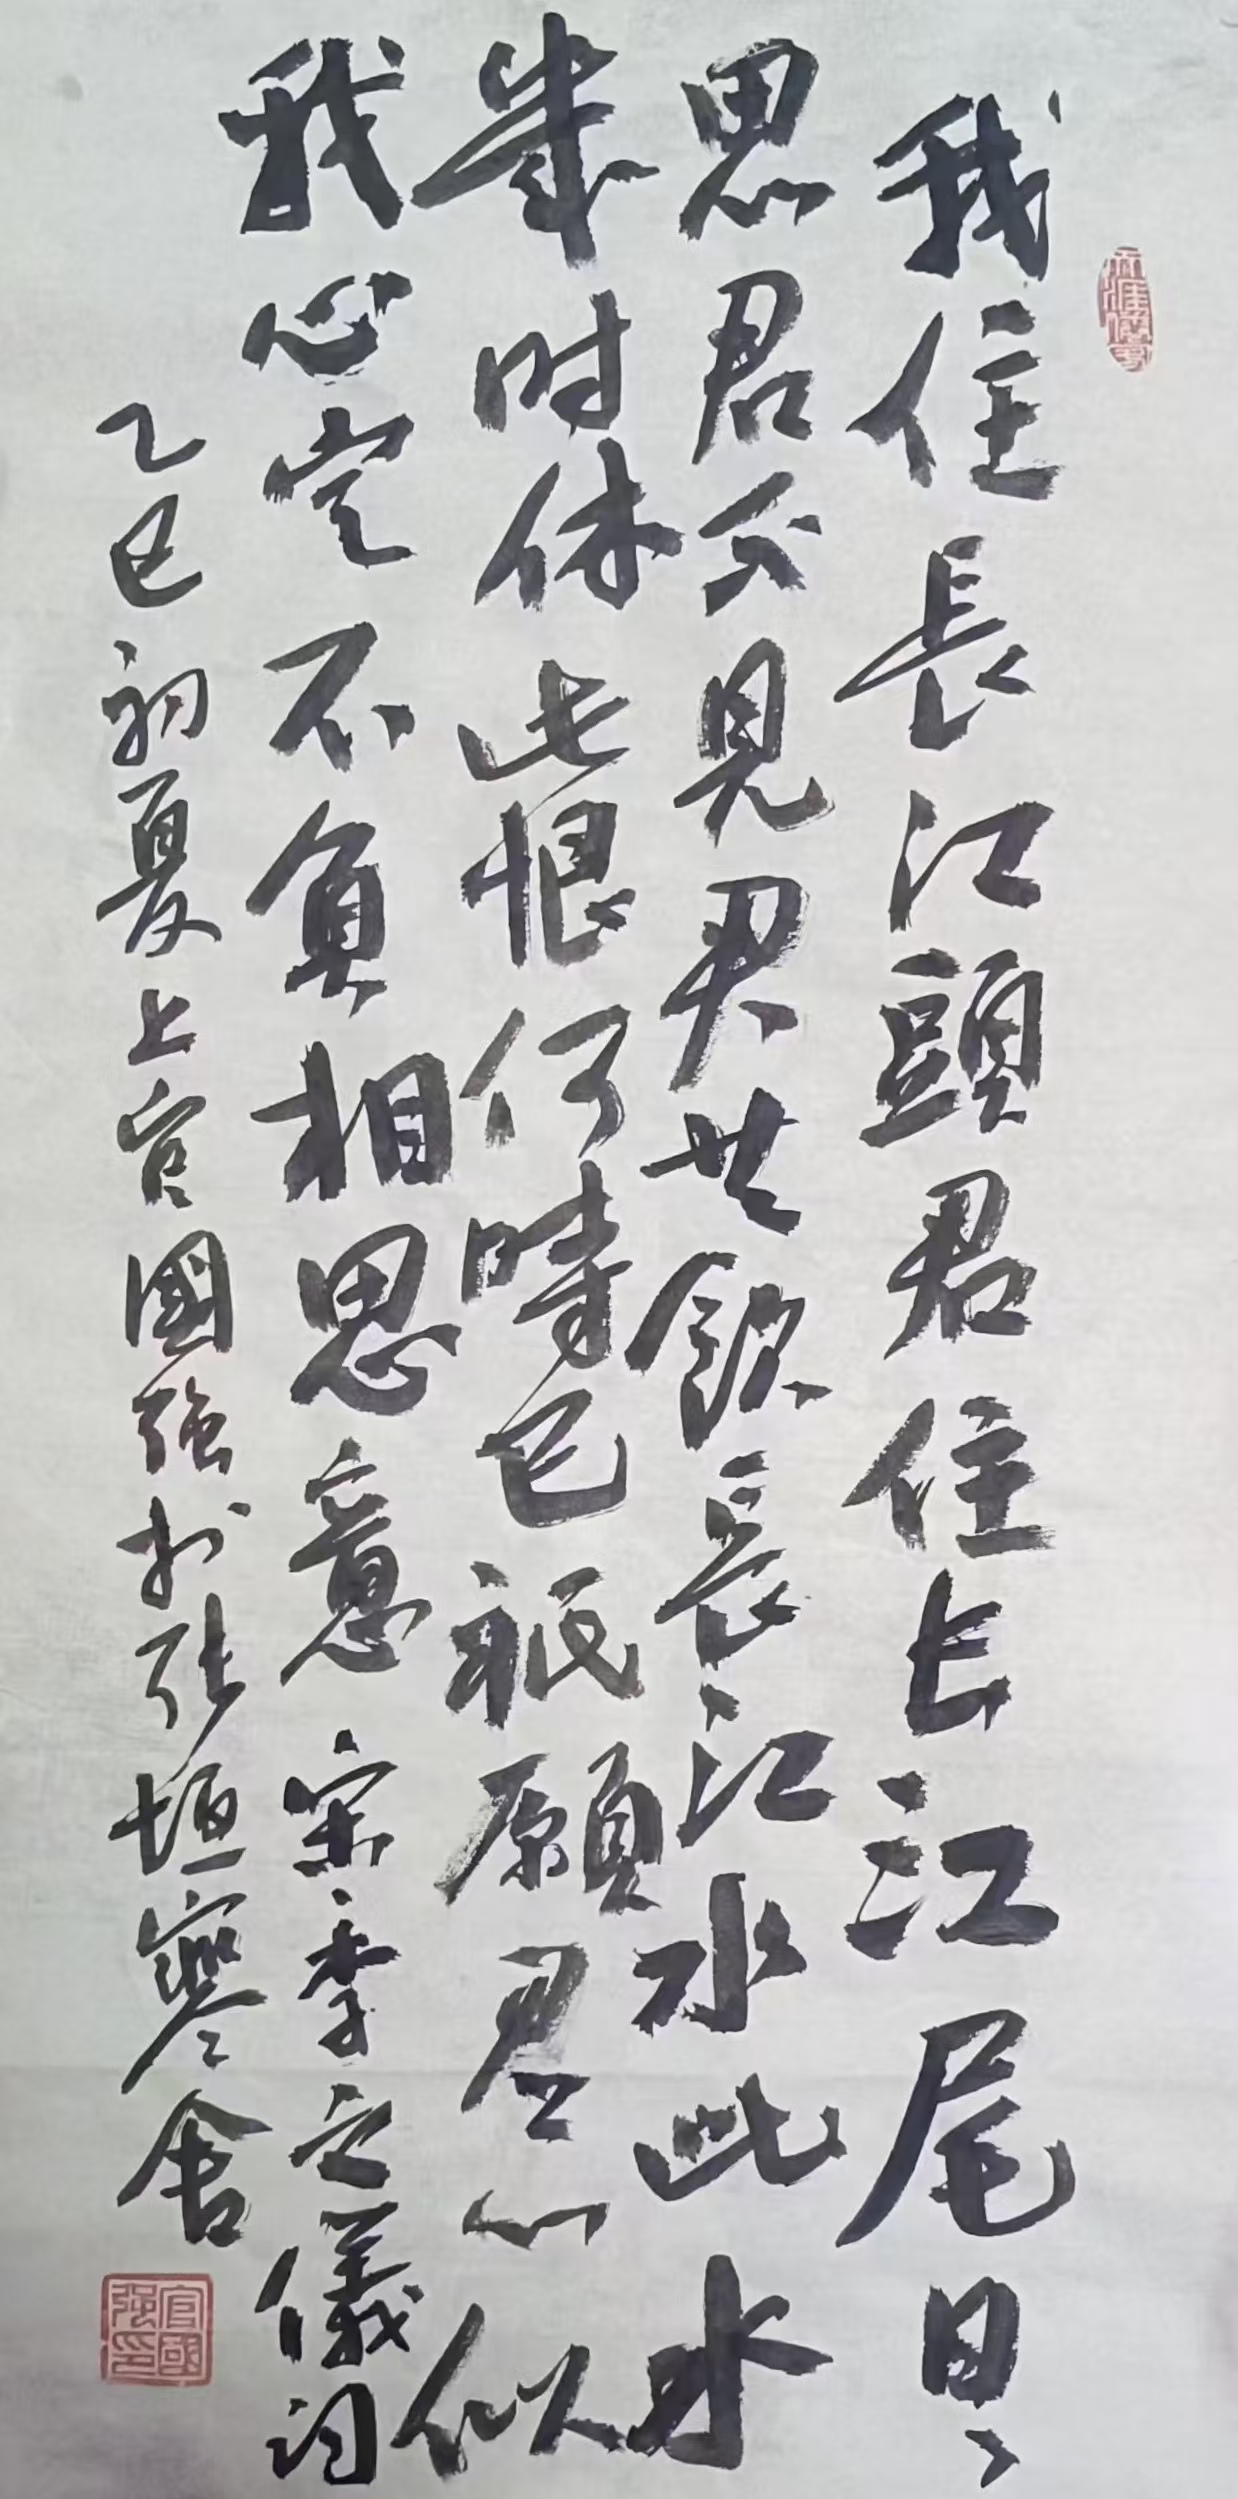 我住長江頭君住长江尾日〻
思君不見君共飲長江水此水
幾时休此恨何時已祇願君心似
我心定不負相思意 宋李之儀词
乙巳初夏上官國強於张垣寒舍
官國強印